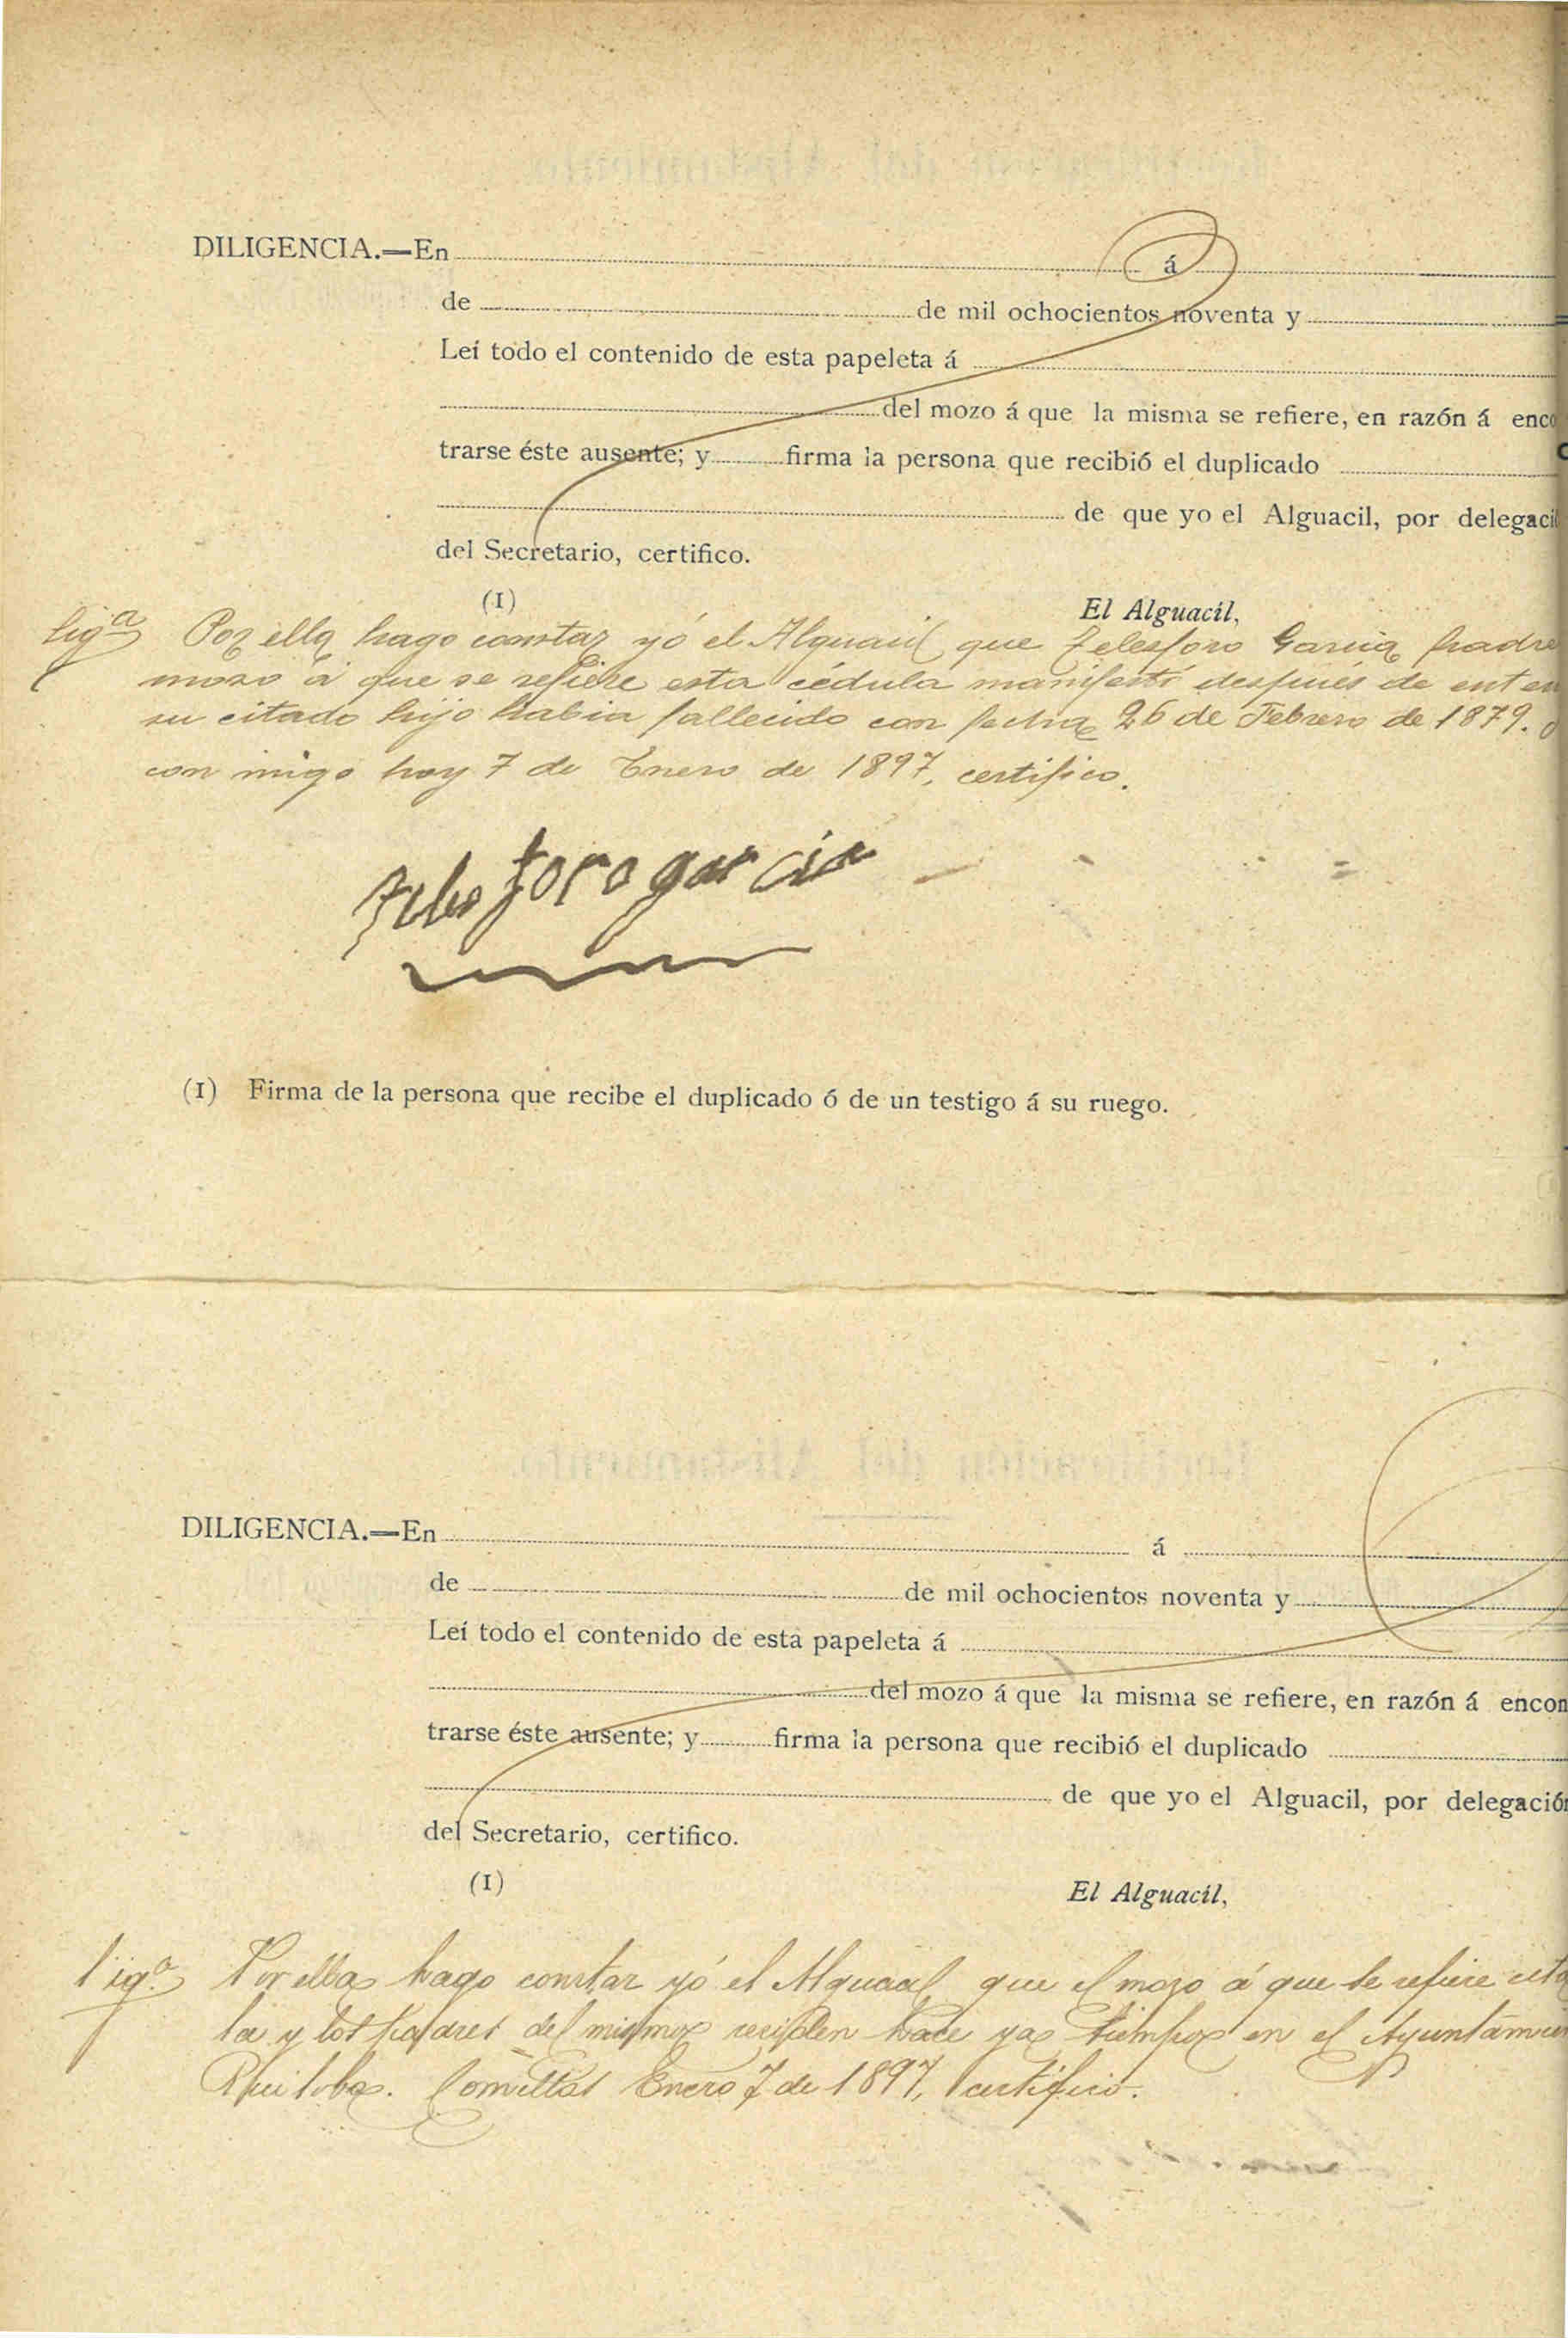 DILIGENCIA.—En á
de de mil ochocientos noventa y
Leí todo el contenido de esta papeleta á
del mozo á que la misma se refiere, en razón á enco
trarse éste ausente; y firma la persona que recibió el duplicado
de que yo el Alguacil, por delegaci
del Secretario, certifico.
(1)
El Alguacil,
lig.ª Por ella hago constar yó el Alguacil que Telesforo Garcia padre
moso á que se refiere esta cédula manifestó despues de enter
su citado hijo habia fallecido con fecha 26 de Febrero de 1879.
con migo hoy 7 de Enero de 1897, certifico.
Telesforo garcia
(1) Firma de la persona que recibe el duplicado ó de un testigo á su ruego.
DILIGENCIA.—En á
de de mil ochocientos noventa y
Leí todo el contenido de esta papeleta á
del mozo á que la misma se refiere, en razón á encon
trarse éste ausente; y firma la persona que recibió el duplicado
de que yo el Alguacil, por delegación
del Secretario, certifico.
(1)
El Alguacil,
lig.ª Por ella hago constar yó el Alguacil que el mozo á que se refiere esta
la y los padres del mismo residen hace ya tiempo en el Ayuntamien
Comillas Enero 7 de 1897, certifico.